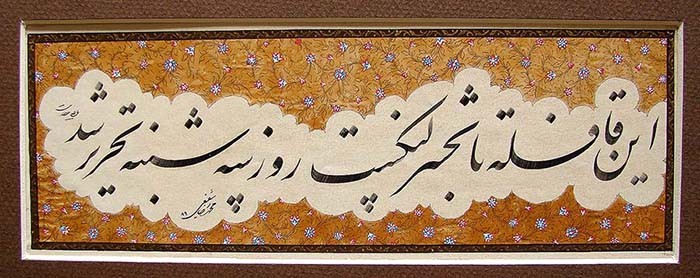 این قافله تا بحشر لنگست روز سه شنبه تحریر شد